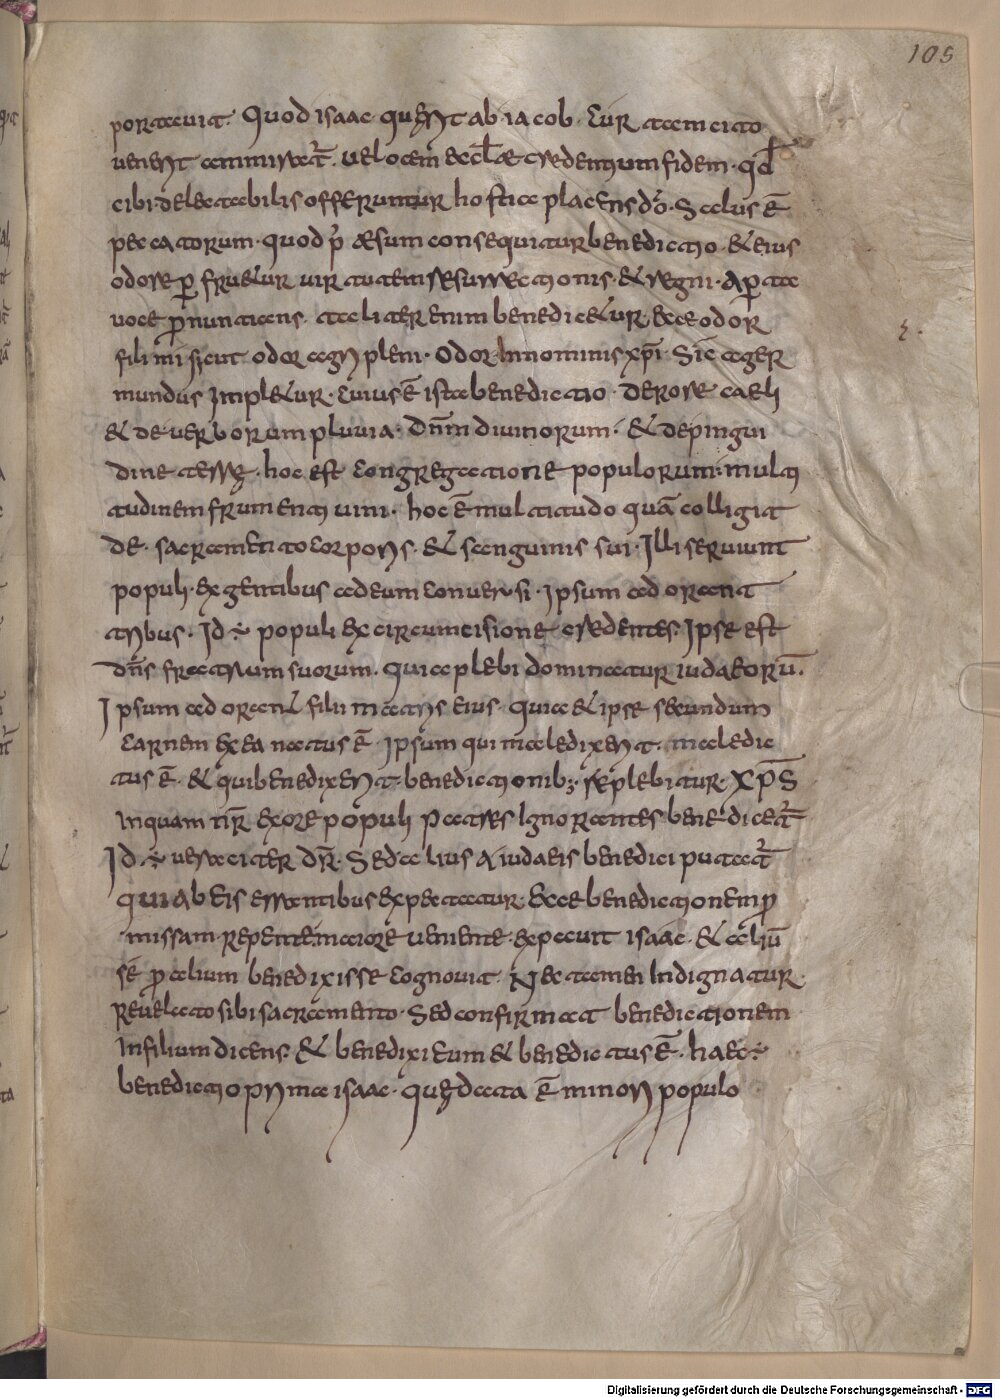 105
portauit. Quod isaac querit ab iacob. Cur tam cito
uenerit ammiratr̄. uelocem aeccl̄ae credentium fidem. qd̄
cibi delectabilis offeruntur hostia placens dō. Scelus ē
peccatorum. quod p̄ aesum consequitur benedictio. & eius
odore ꝑfru&ur uirtutem resurrectionis. & regni. aperta
uoce ꝓnuntians. taliter enim benedic&ur. ecce odor
fili mi sicut odor agri pleni. Odor In nominis xp̄i. Sic ager
mundus Impl&ur. Cuius ē ista benedictio. de rore caeli
& de uerborum pluuia. dnm̄ diuinorum. & de pingui
dine terrę. hoc est congregatione populorum. multi
tudinem frumenti uini. hoc ē multitudo quā colligit
de. sacramento corporis. & sanguinis sui. Illi seruiunt
populi. ex gentibus ad eum conuersi. ipsum adorant
tribus. Id ÷ populi ex circumcisione credentes. Ipse est
dn̄s fratrum suorum. quia plebi dominatur iudaeorū.
Ipsum adorant filii matris eius. quia & ipse secundum
carnem ex ea natus ē. Ipsum qui maledixerit. maledic
tus ē. & qui benedixerit. benedictionib; replebitur. Xp̄s
Inquam nr̄ ex ore populi patres ignorantes benedicatr̄
Id ÷ ueraciter dr̄. Sed alius a iudaeis benedici putatr̄
qui ab eis errantibus expectatur. Ecce benedictionem ꝓ
missam. repente. maiore ueniente. expauit isaac. & aliū
se ꝓ alium benedixisse cognouit. Nec tamen Indignatur.
Reuelato sibi sacramento. Sed confirmat benedictionem
In filium dicens. & benedixi eum & benedictus ē. haec ÷
benedictio prima isaac. quę data ē minori populo